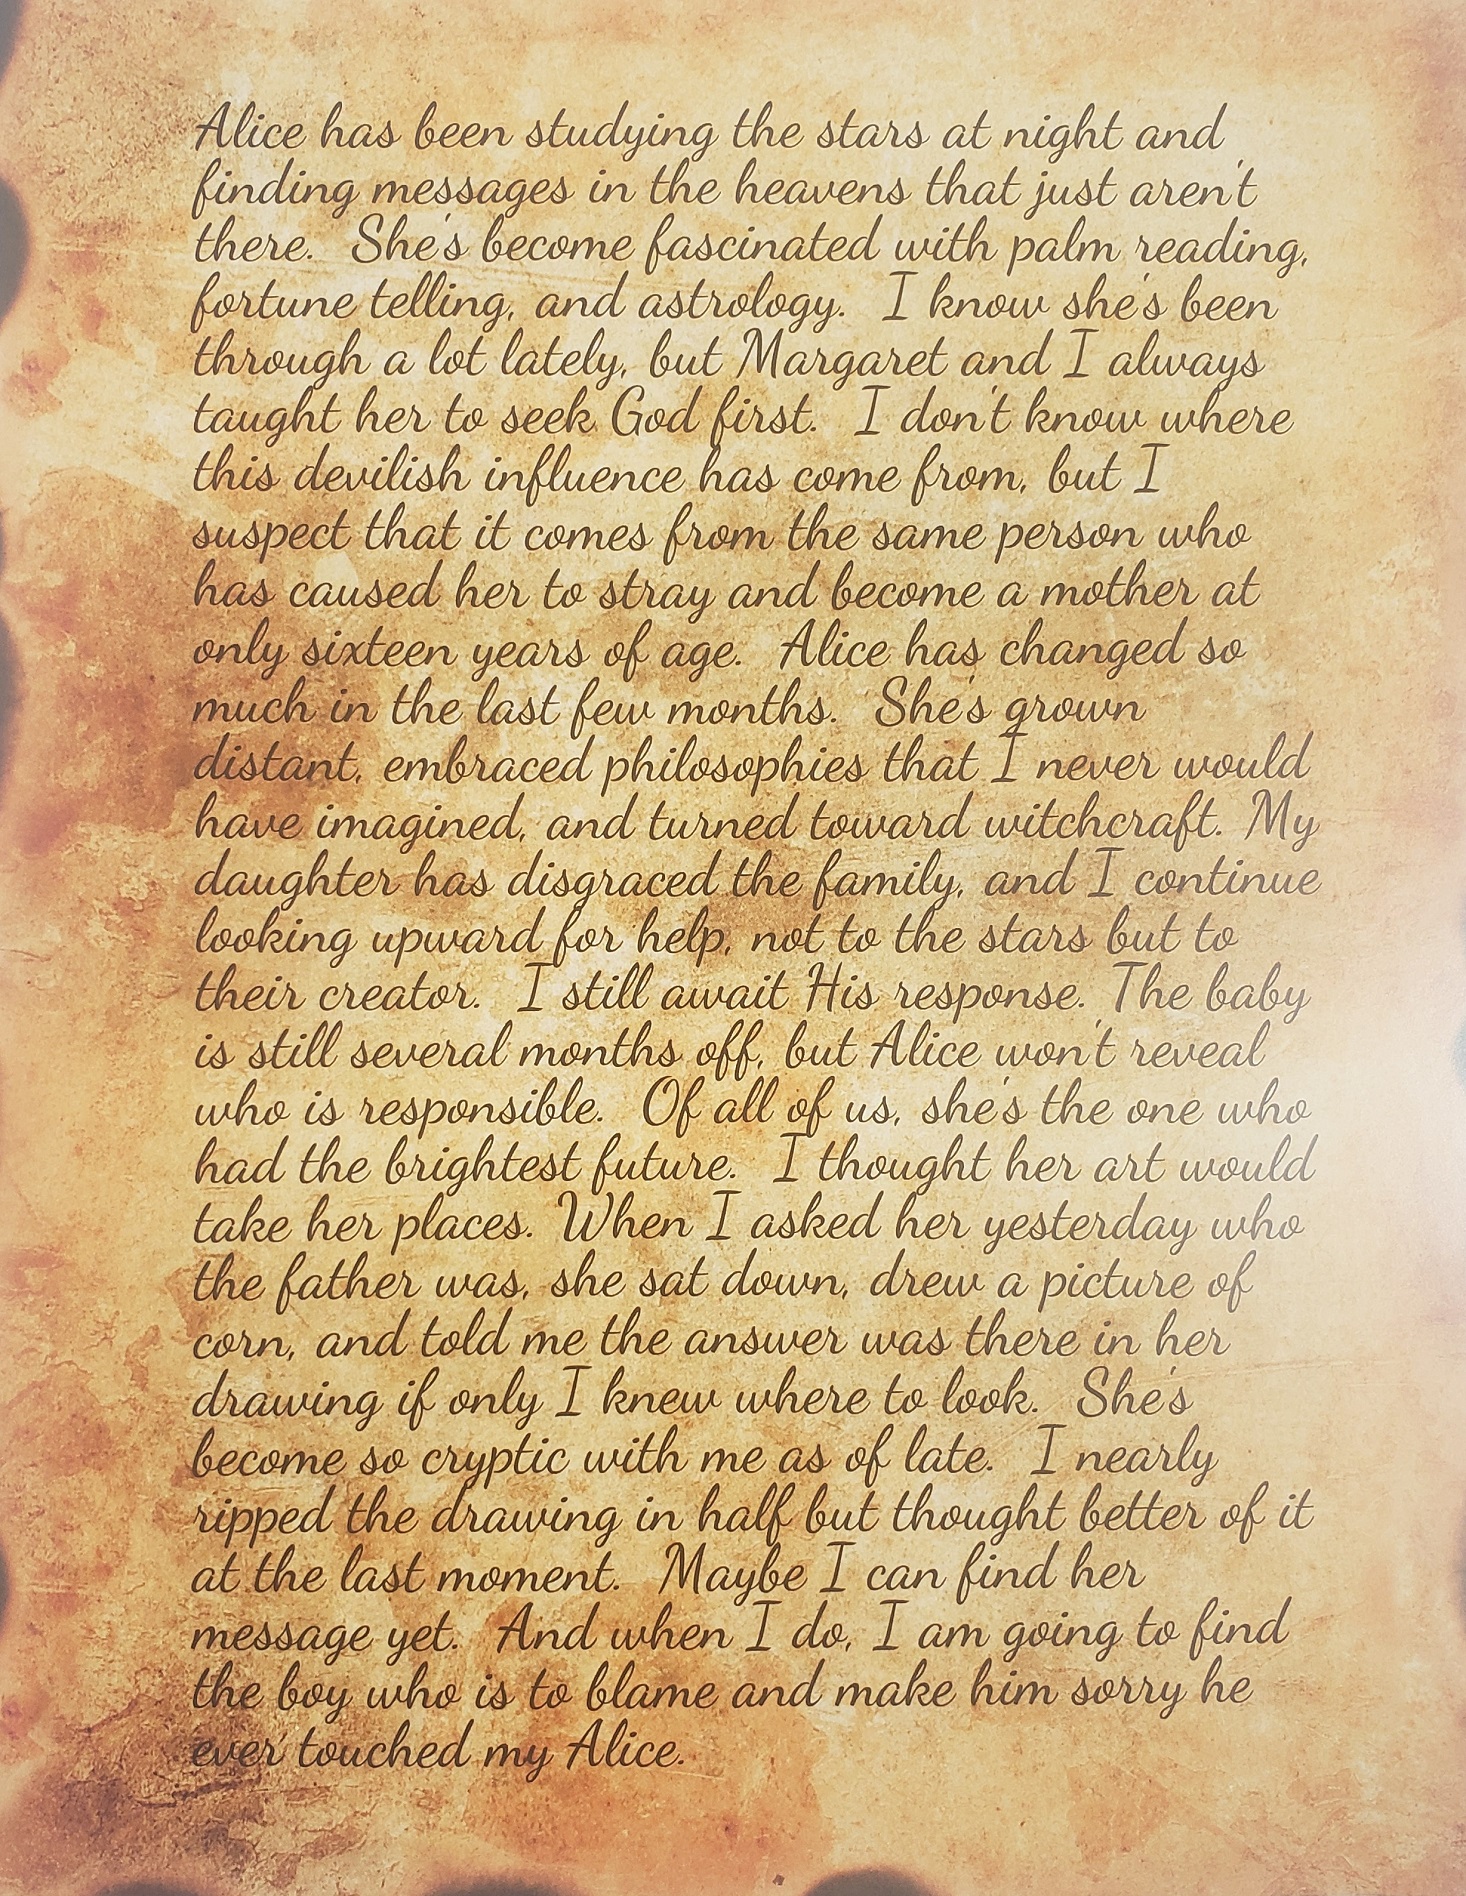 Alice has been studying the stars at night and
finding messages in the heavens that just aren't
there. She's become fascinated with palm reading,
fortune telling, and astrology. I know she's been
through a lot lately, but Margaret and I always
taught her to seek God first. I don't know where
this devilish influence has come from, but I
suspect that it comes from the same person who
has caused her to stray and become a mother at
only sixteen years of age. Alice has changed so
much in the last few months. She's grown
distant, embraced philosophies that I never would
have imagined, and turned toward witchcraft. My
daughter has disgraced the family, and I continue
looking upward for help, not to the stars but to
their creator. I still await His response. The baby
is still several months off, but Alice won't reveal
who is responsible. Of all of us, she's the one who
had the brightest future. I thought her art would
take her places. When I asked her yesterday who
the father was, she sat down, drew a picture of
corn, and told me the answer was there in her
drawing if only I knew where to look. She's
become so cryptic with me as of late. I nearly
ripped the drawing in half but thought better of it
at the last moment. Maybe I can find her
message yet. And when I do, I am going to find
the boy who is to blame and make him sorry he
ever touched my Alice.